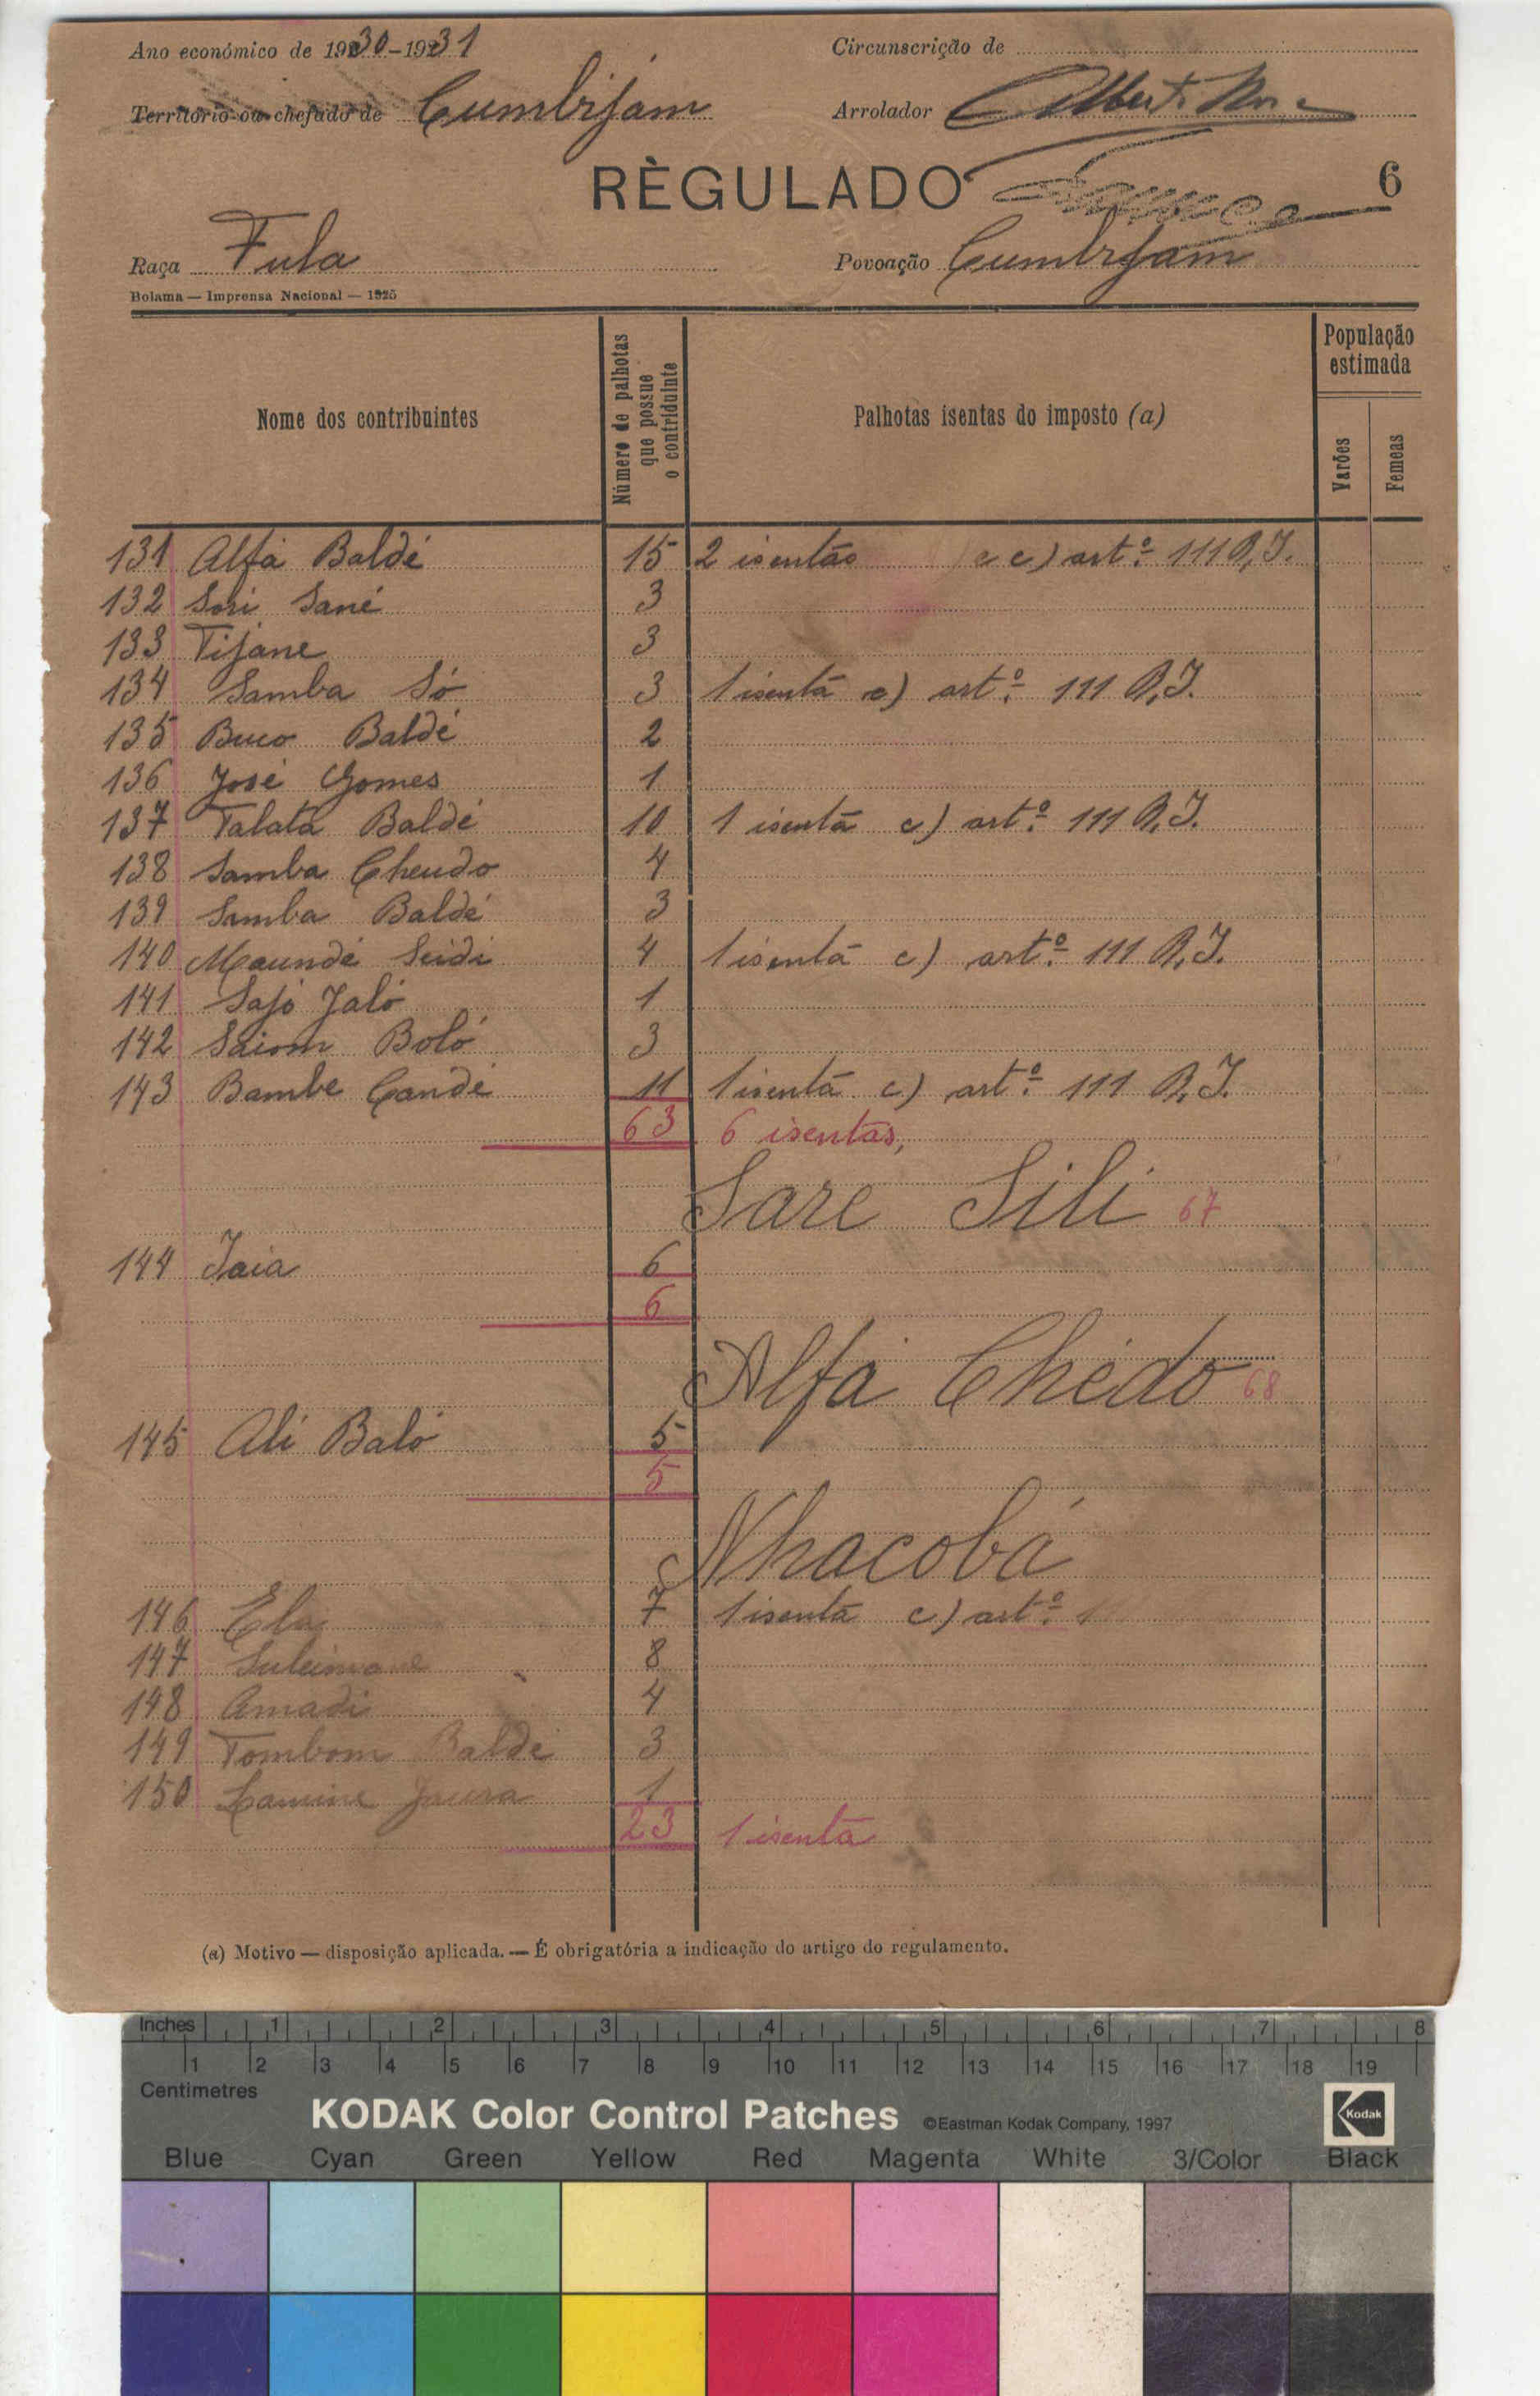 Ano económico de 1930-1931 Circunscrição de
Território ou chefado de Cumbijam Arrolador
RÈGULADO 6
Raça Fula Povoação Cumbijam
Bolama — Imprensa Nacional — 1925
Nome dos contribuintes Número de palhotas que possue o contriduinte Palhotas isentas do imposto (a) População estimada Varões Femeas
131 Alfa Baldé 15 2 isentas c c) artº 111 R.I.
132 Sori Sané 3
133 Tijane 3
134 Samba Só 3 1 isenta c) artº 111 R.I.
135 Buco Baldé 2
136 José Gomes 1
137 Talata Baldé 10 1 isenta c) artº 111 R.I.
138 Samba Cheudo 4
139 Samba Baldé 3
140 Maundé Seidi 4 1 isenta c) artº 111 R.I.
141 Sajó Jaló 1
142 Saiom Boló 3
143 Bambe Candé 11 1 isenta c) artº 111 R.I.
63 6 isentas,
Sare Sili 67
144 Jaia 6
6
Alfa Chédo 68
145 Ali Baló 5
5
Nhacobá
146 Ela 7 1 isenta c) artº
147 Suleimane 8
148 Amadi 4
149 Tombom Baldé 3
150 Lamine Jaura 1
23 1 isenta
(a) Motivo — disposição aplicada. — É obrigatória a indicação do artigo do regulamento.
Inches 1 2 3 4 5 6 7 8
1 2 3 4 5 6 7 8 9 10 11 12 13 14 15 16 17 18 19
Centimetres
KODAK Color Control Patches ©Eastman Kodak Company, 1997 Kodak
Blue Cyan Green Yellow Red Magenta White 3/Color Black